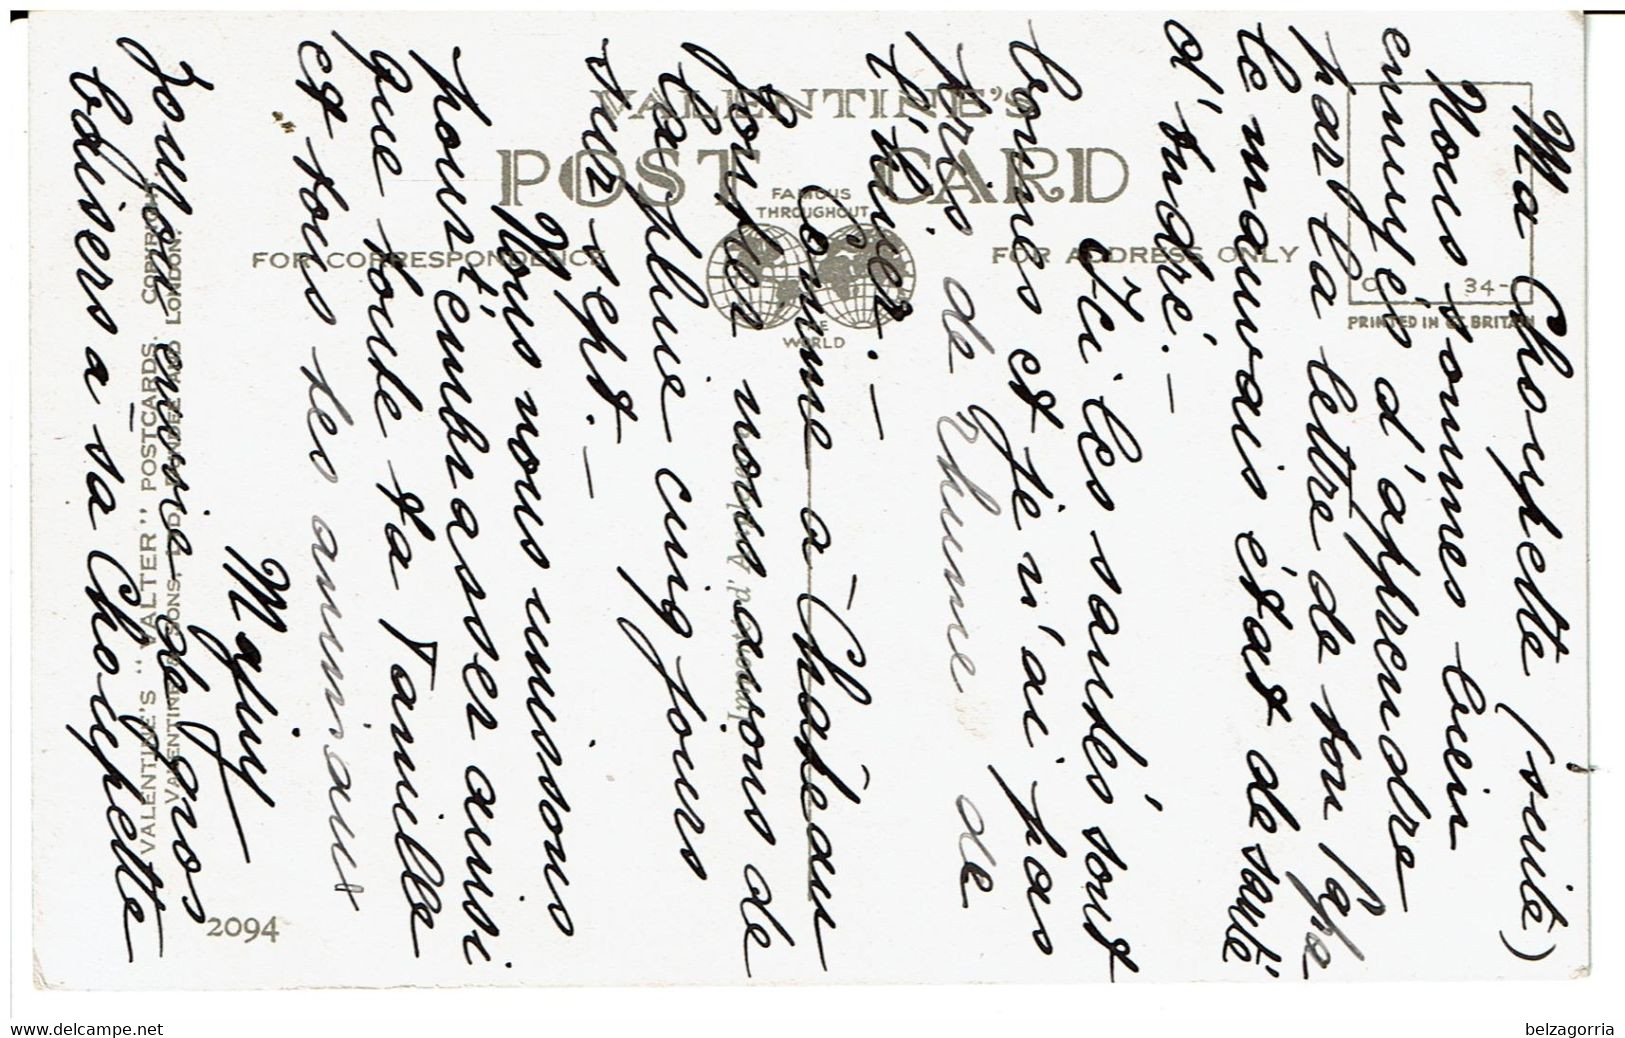 Ma Choupette (suite)
Nous sommes bien
ennuyés d'apprendre
par la lettre de ton Papa
le mauvais état de santé
d'André. —
Ici les santés sont
bonnes et je n'ai pas
pris de rhume de
l'été.
Comme à Château
nous avons de
la pluie cinq jours
sur sept. —
Nous nous unissons
pour t'embrasser ainsi
que toute ta famille
et tous tes animaux
Majuy
Toujours envie de gros
baisers à sa Choupette
VALENTINE'S
POST CARD
FAMOUS
THROUGHOUT
THE
WORLD
FOR CORRESPONDENCE
FOR ADDRESS ONLY
34-
PRINTED IN GT. BRITAIN
VALENTINE'S "VALTER" POSTCARDS. COPYRIGHT.
VALENTINE & SONS, LTD. DUNDEE AND LONDON.
2094
www.delcampe.net
belzagorria